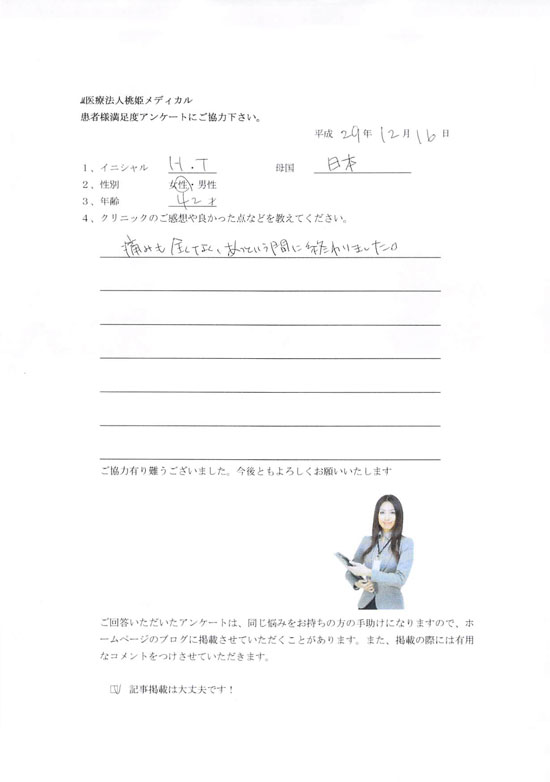 医療法人桃姫メディカル
患者様満足度アンケートにご協力下さい。
平成 29年 12月 16日
1、イニシャル H.T 母国 日本
2、性別 女性・男性
3、年齢 42才
4、クリニックのご感想や良かった点などを教えてください。
痛みも全くなく、あっという間に終わりました。
ご協力有り難うございました。今後ともよろしくお願いいたします
ご回答いただいたアンケートは、同じ悩みをお持ちの方の手助けになりますので、ホ
ームページのブログに掲載させていただくことがあります。また、掲載の際には有用
なコメントをつけさせていただきます。
記事掲載は大丈夫です！